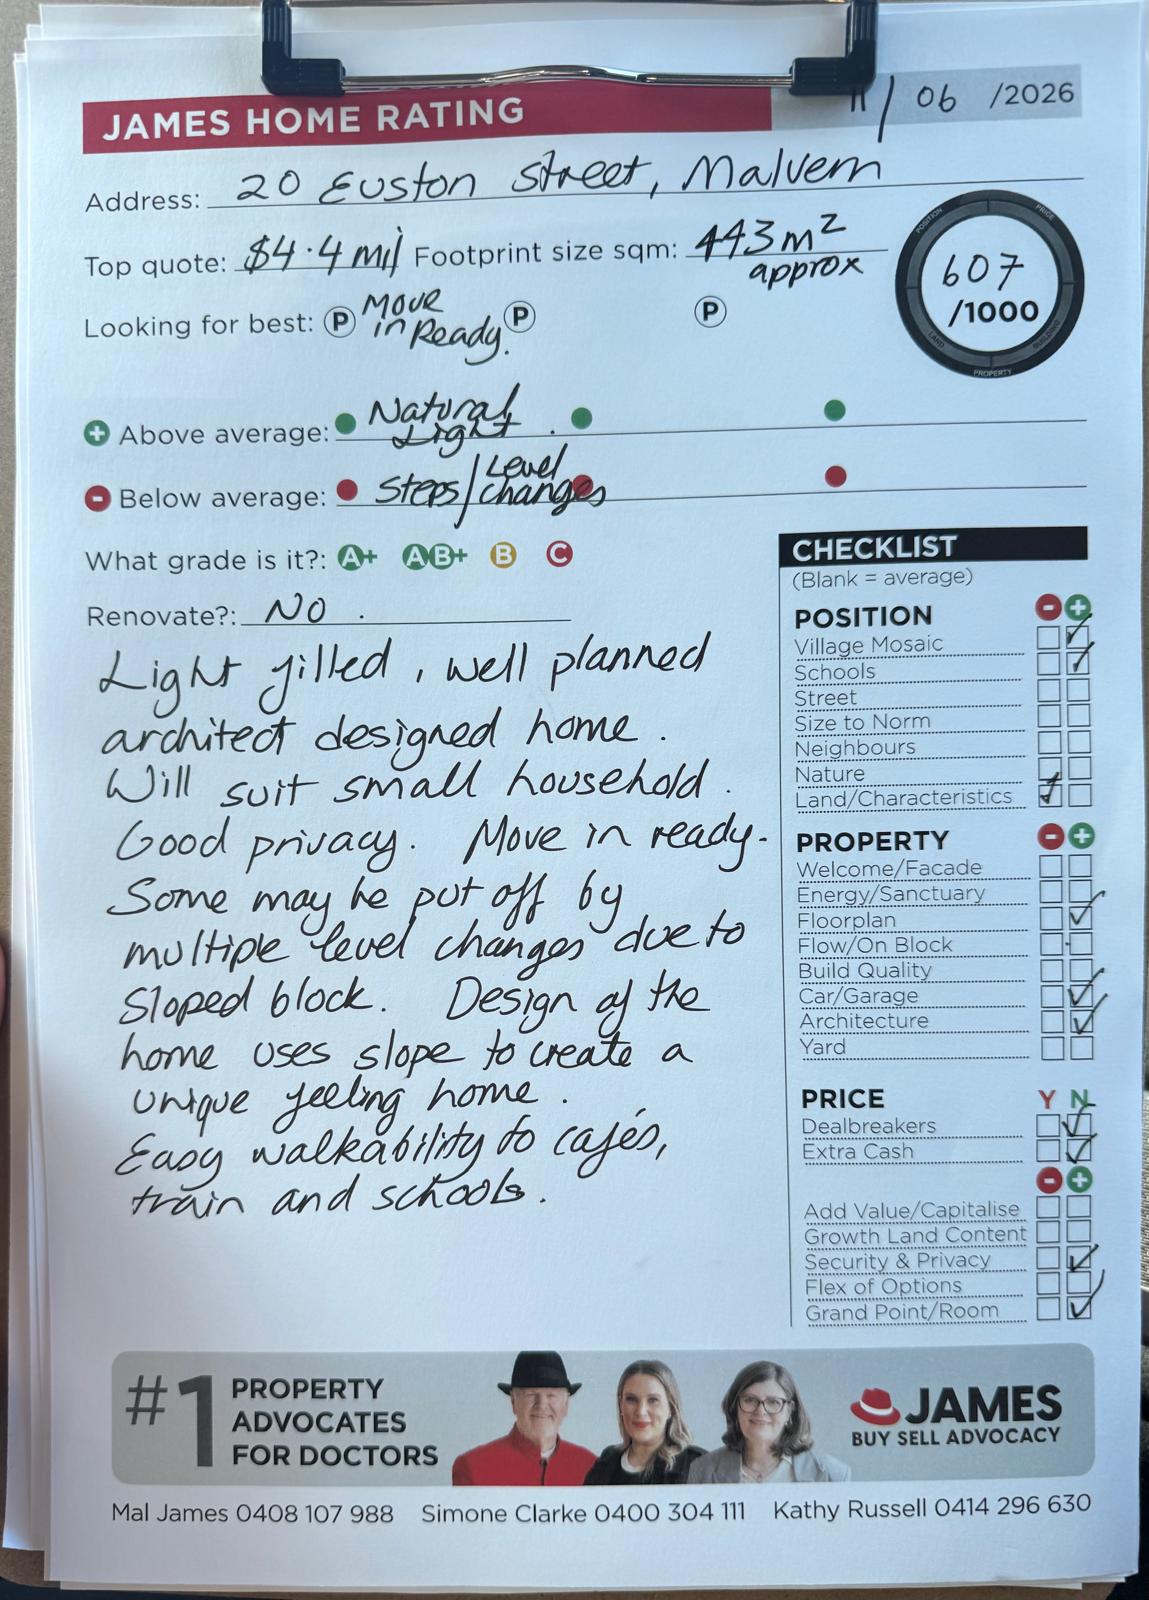 JAMES HOME RATING
11/ 06 /2026
Address: 20 Euston Street, Malvern
Top quote: $4.4 mil Footprint size sqm: 443m² approx
POSITION PRICE BUILDING PROPERTY LAND
607
/1000
Looking for best: P Move in Ready. P P
Above average: Natural Light.
Below average: Steps/Level changes
What grade is it?: A+ AB+ B C
Renovate?: NO.
Light filled, well planned
architect designed home.
Will suit small household.
Good privacy. Move in ready.
Some may be put off by
multiple level changes due to
sloped block. Design of the
home uses slope to create a
unique feeling home.
Easy walkability to cafés,
train and schools.
CHECKLIST
(Blank = average)
POSITION - +
Village Mosaic
Schools
Street
Size to Norm
Neighbours
Nature
Land/Characteristics
PROPERTY - +
Welcome/Facade
Energy/Sanctuary
Floorplan
Flow/On Block
Build Quality
Car/Garage
Architecture
Yard
PRICE Y N
Dealbreakers
Extra Cash
- +
Add Value/Capitalise
Growth Land Content
Security & Privacy
Flex of Options
Grand Point/Room
#1 PROPERTY
ADVOCATES
FOR DOCTORS
JAMES
BUY SELL ADVOCACY
Mal James 0408 107 988 Simone Clarke 0400 304 111 Kathy Russell 0414 296 630